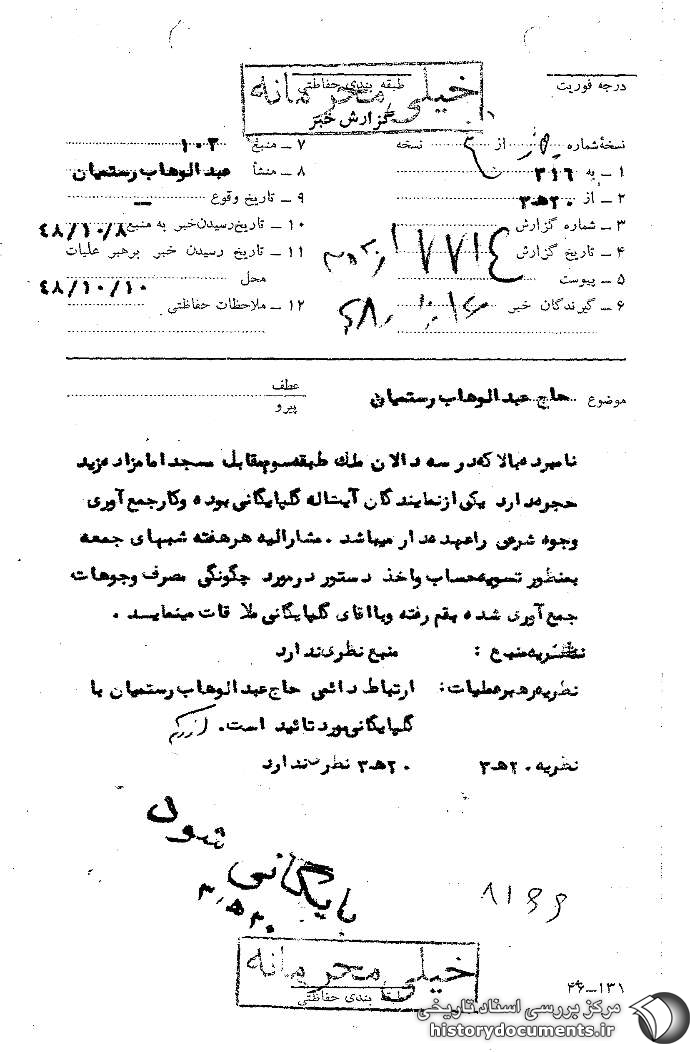 خیلی محرمانه
طبقه بندی حفاظتی
درجه فوریت
گزارش خبر
نسخهٔ شماره از نسخه
۱ ــ به ۳۱۶
۲ ــ از ۲۰ هـ ۳
۳ ــ شماره گزارش
۴ ــ تاریخ گزارش
۵ ــ پیوست
۶ ــ گیرندگان خبر
۷ ــ منبع ۱۰۳
۸ ــ منشأ عبدالوهاب رستمیان
۹ ــ تاریخ وقوع ــ
۱۰ ــ تاریخ رسیدن خبر به منبع ۴۸/۱۰/۸
۱۱ ــ تاریخ رسیدن خبر برهبر عملیات
محل ۴۸/۱۰/۱۰
۱۲ ــ ملاحظات حفاظتی
موضوع حاج عبدالوهاب رستمیان
عطف
پیرو
نامبرده بالا که در سه دالان ملك طبقه سوم مقابل مسجد امامزاده زید
حجره دارد یکی از نمایندگان آیت اله گلپایگانی بوده و کار جمع آوری
وجوه شرعی را عهده دار میباشد . مشارالیه هر هفته شبهای جمعه
بمنظور تسویه حساب و اخذ دستور در مورد چگونگی مصرف وجوهات
جمع آوری شده بقم رفته و با اقای گلپایگانی ملاقات مینمایسد .
نظریه منبع : منبع نظری ندارد
نظریه رهبر عملیات: ارتباط دائمی حاج عبدالوهاب رستمیان با
گلپایگانی مورد تائید است.
نظریه ۲۰ هـ ۳ ۲۰ هـ ۳ نظر ندارد
بایگانی شود
۲۰ هـ ۳
خیلی محرمانه
طبقه بندی حفاظتی
۱۳۱ــ۴۶
مرکز بررسی اسناد تاریخی
historydocuments.ir